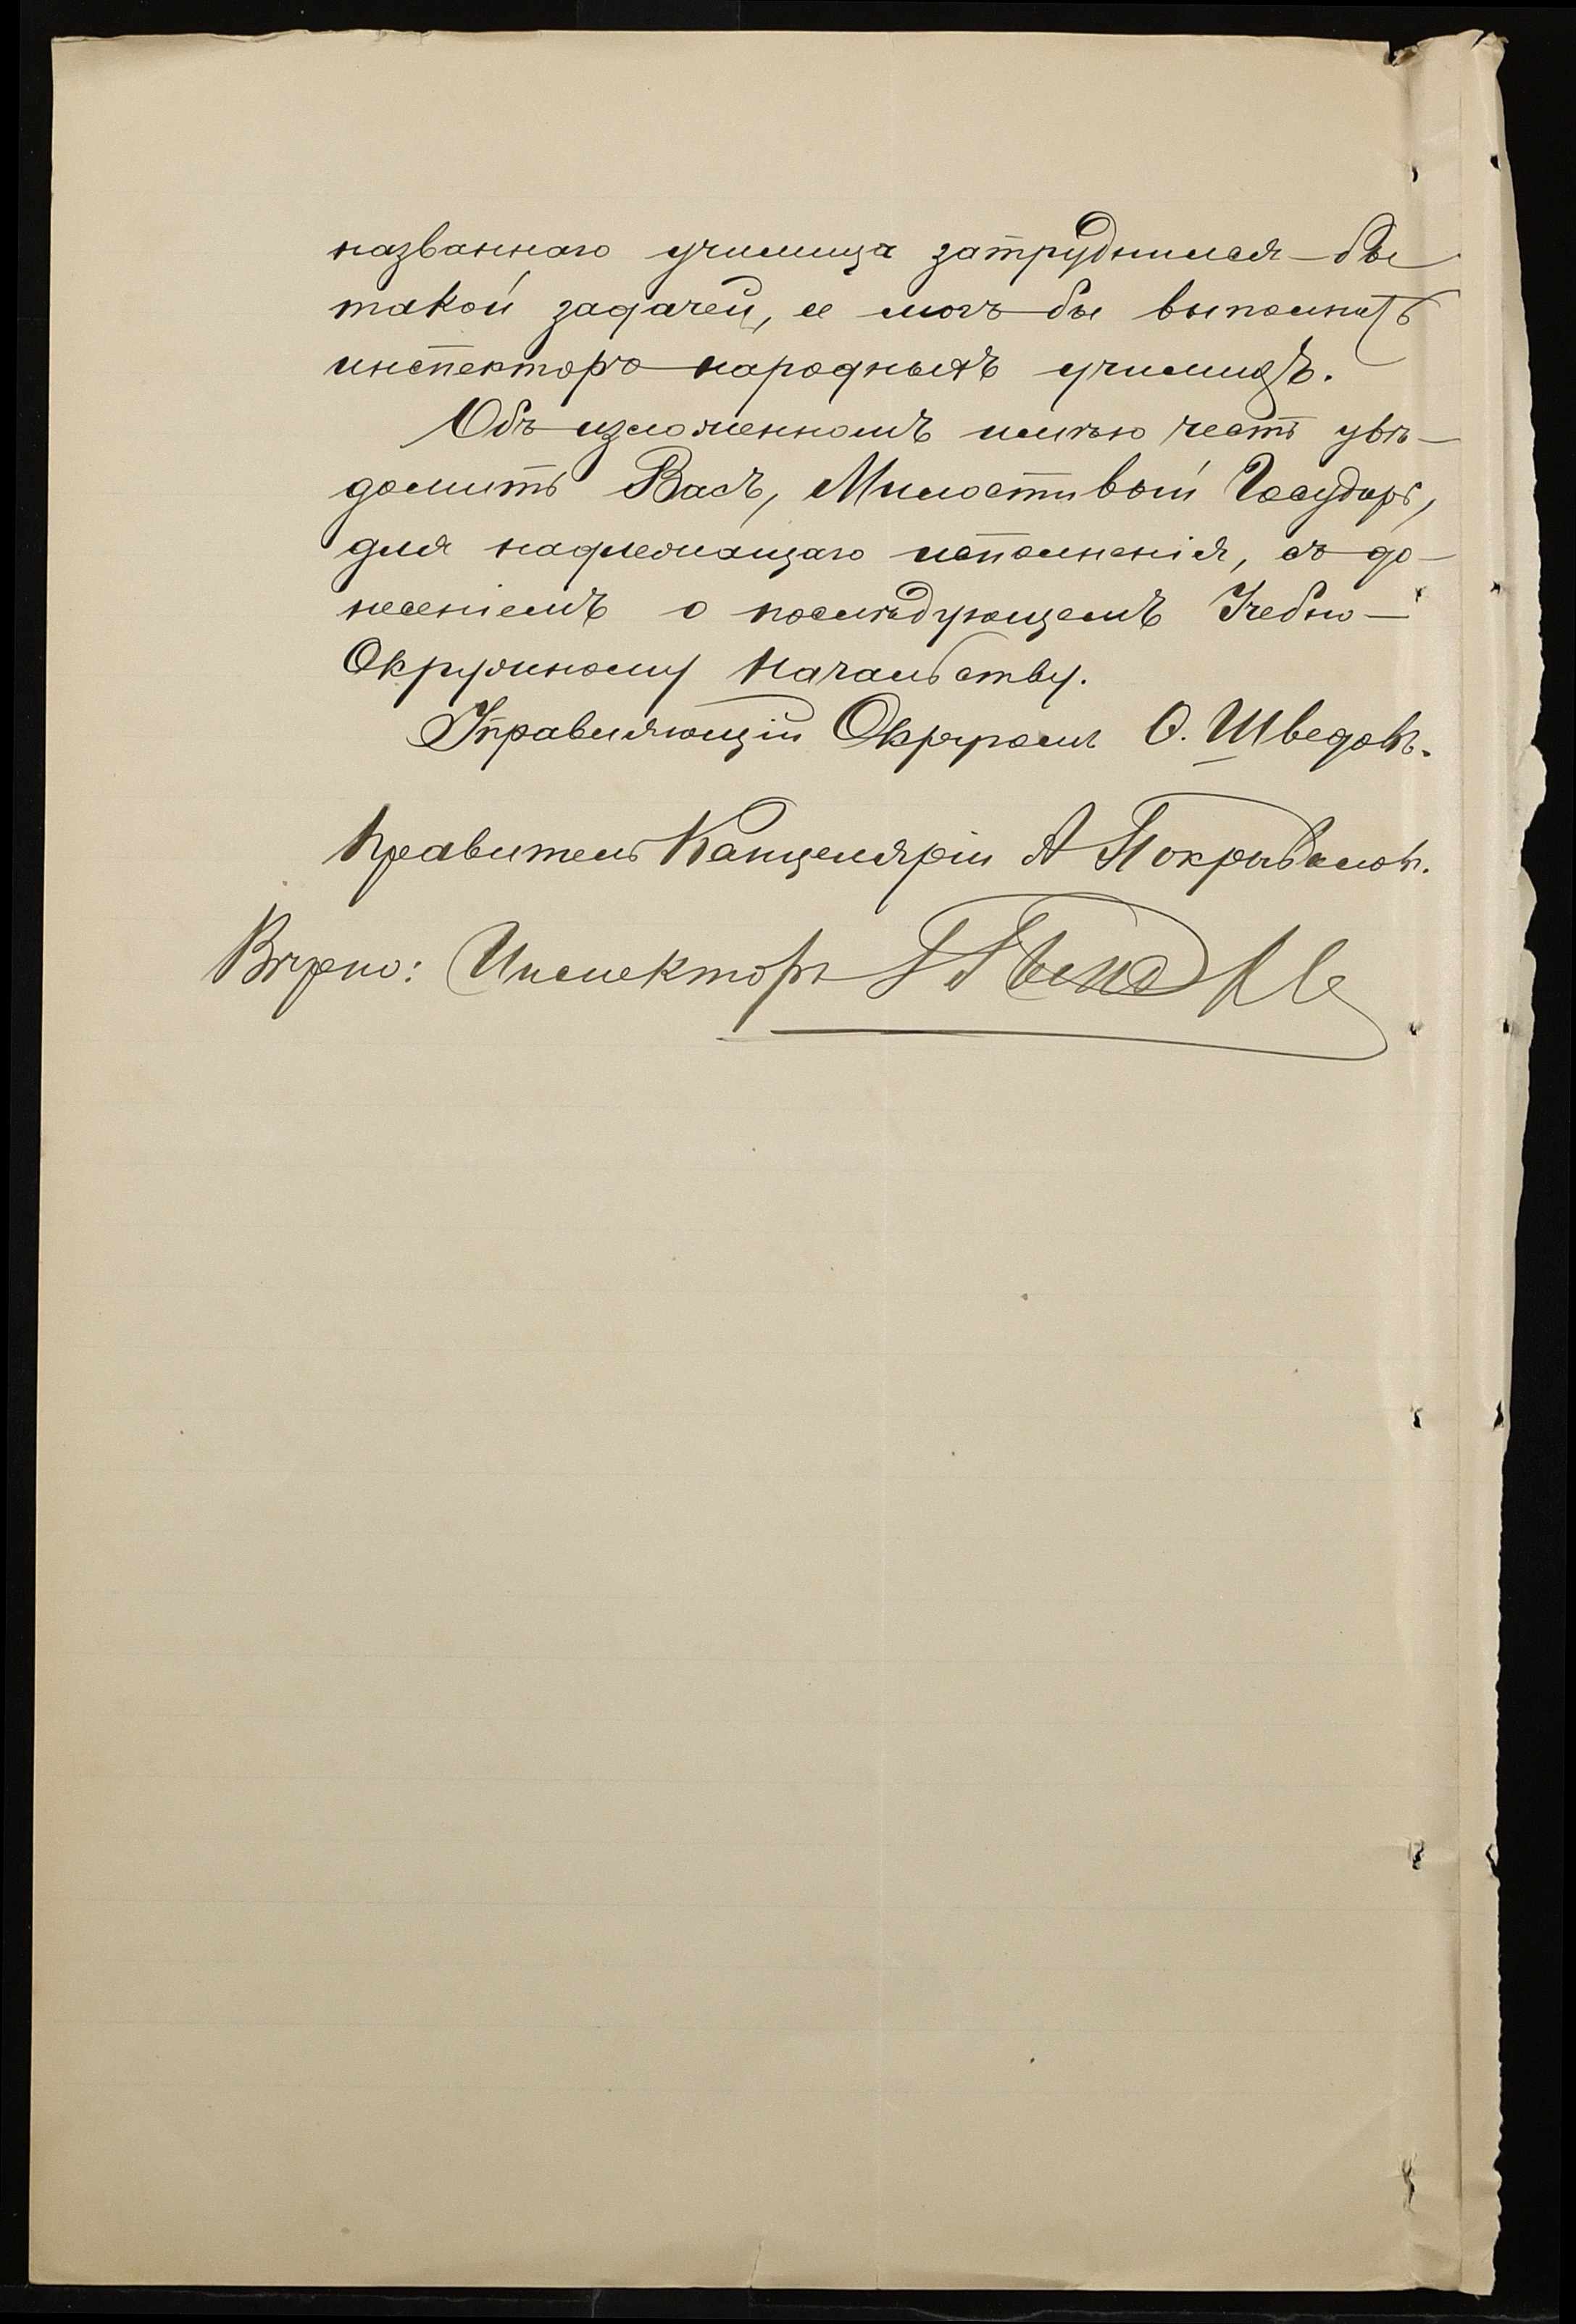 названнаго училища затруднился-бы
такой задачей, ее могъ-бы выполнить
инспекторъ народныхъ училищъ.
Объ изложенномъ имѣю честь увѣ-
домить Васъ, Милостивый Государь,
для надлежащаго исполненія, съ до-
несеніемъ о послѣдующемъ Учебно-
Окружному Начальству.
Управляющій Округомъ О. Шведовъ.
Правитель Канцеляріи А Покрываловъ.
Вѣрно: Инспекторъ